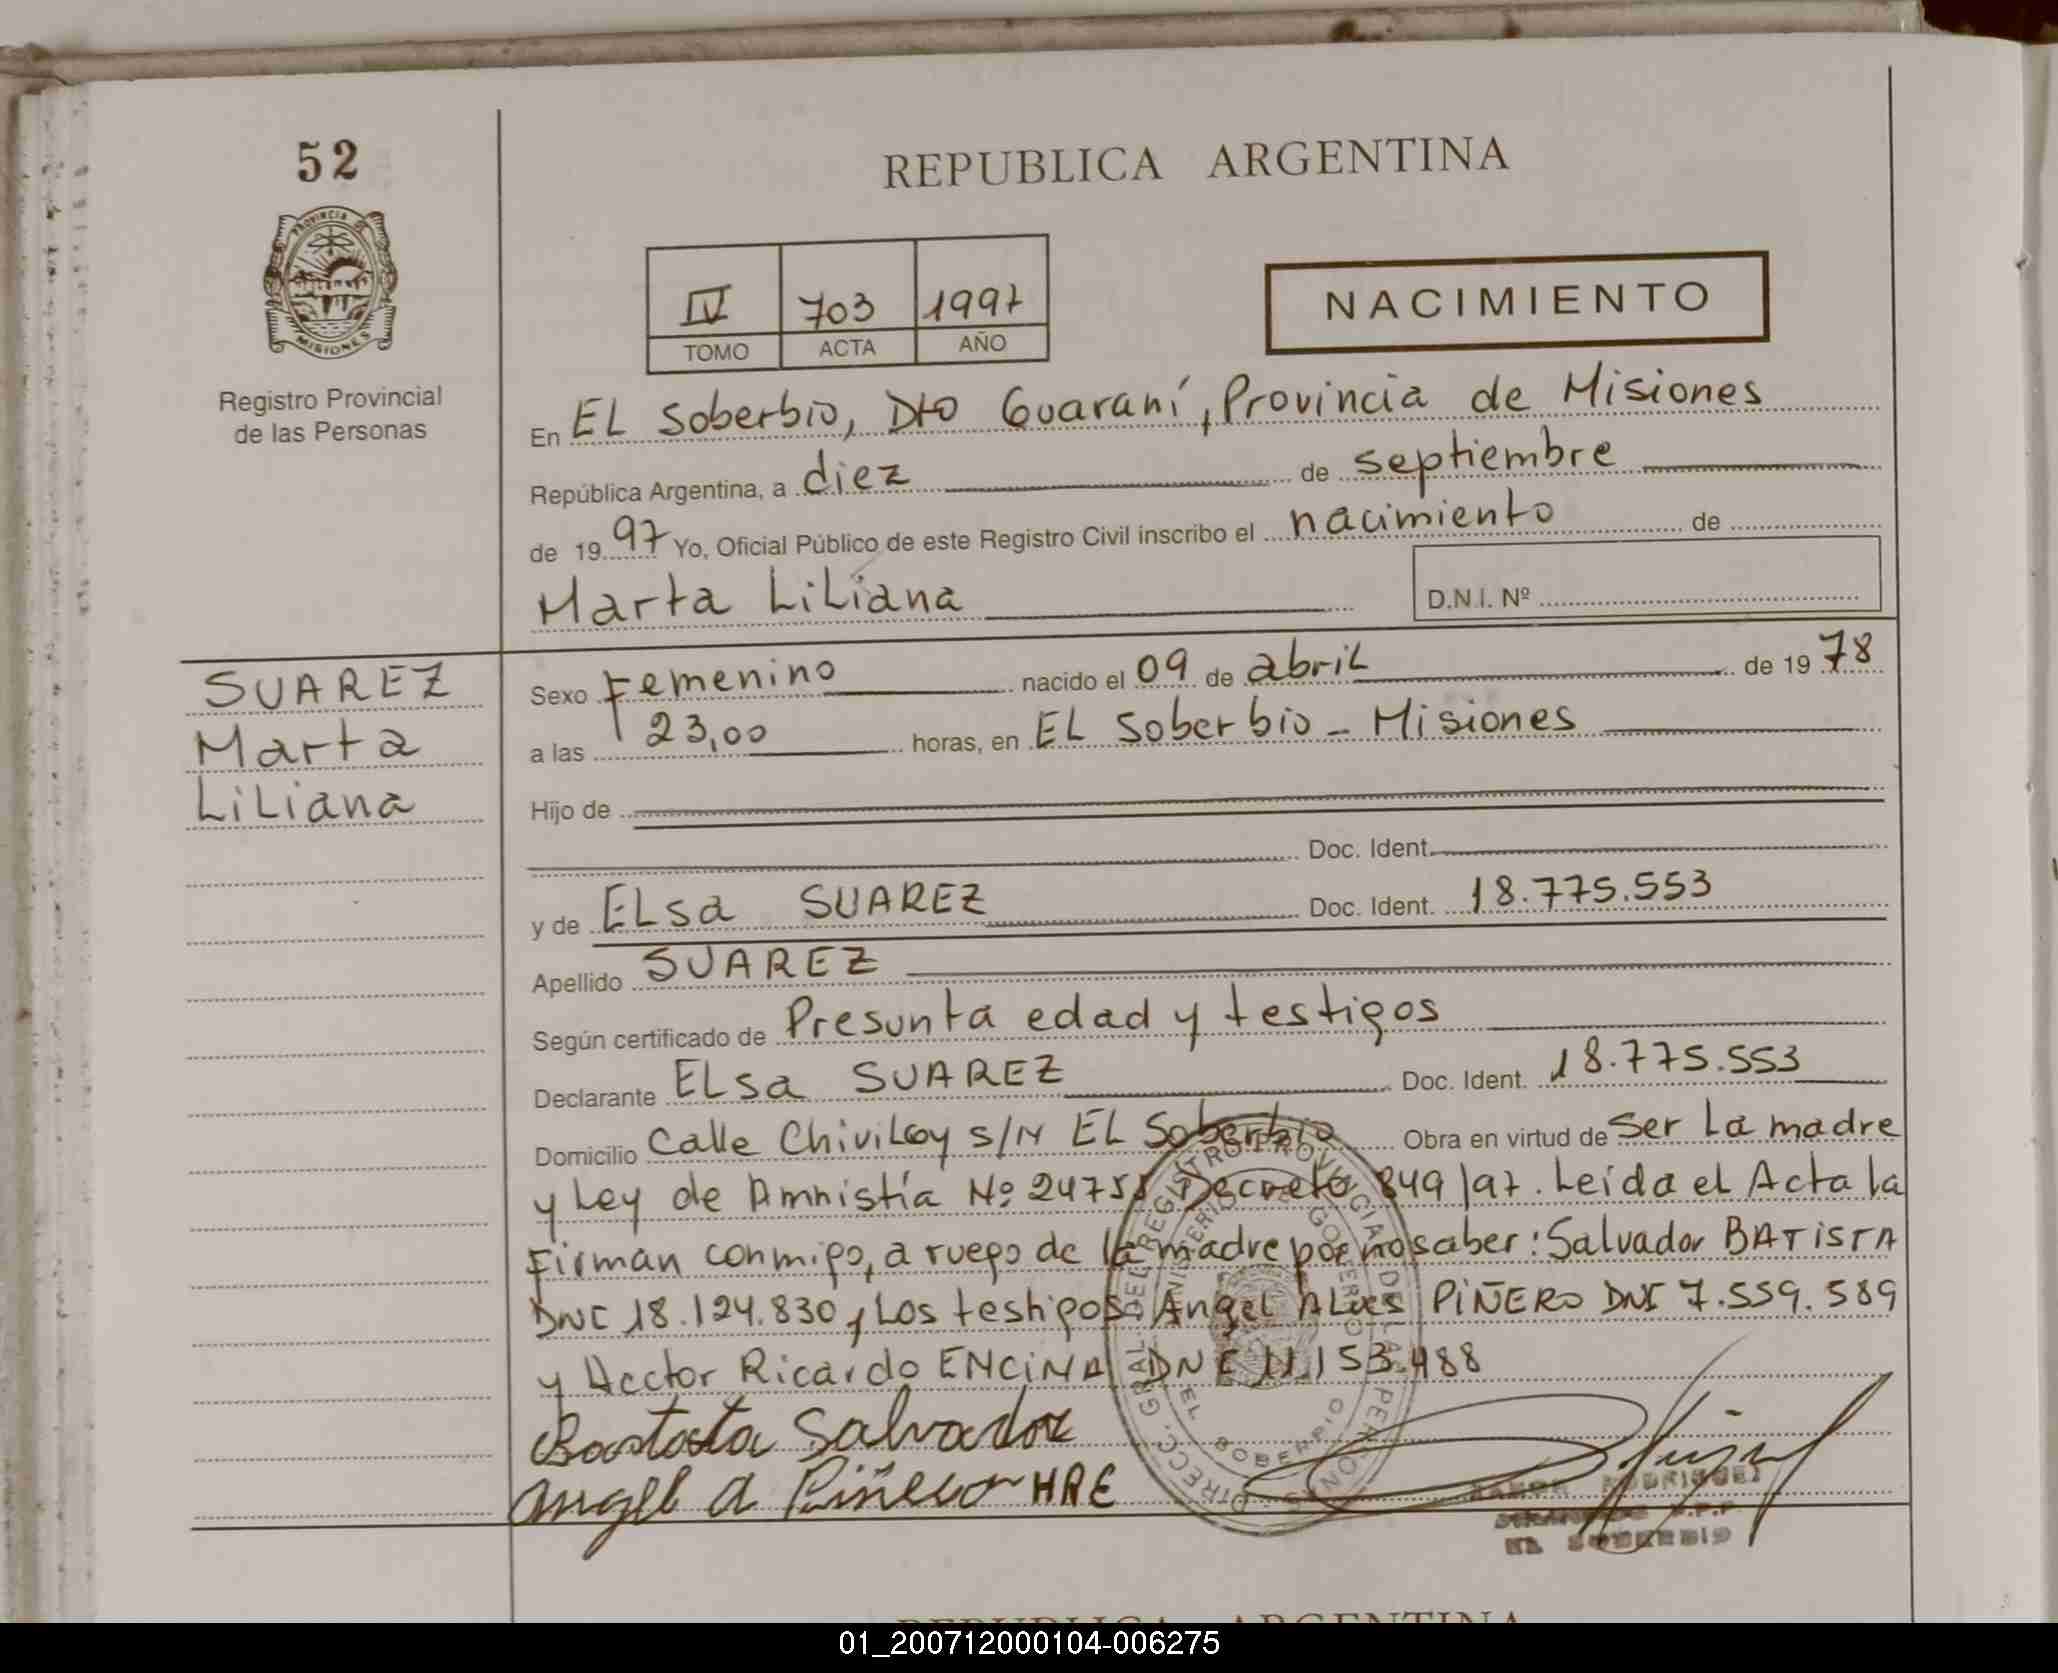 52
REPUBLICA ARGENTINA
PROVINCIA
MISIONES
Registro Provincial
de las Personas
IV 703 1997
TOMO ACTA AÑO
NACIMIENTO
En EL Soberbio, Dto Guaraní, Provincia de Misiones
República Argentina, a diez de septiembre
de 19 97 Yo, Oficial Público de este Registro Civil inscribo el nacimiento de
Marta Liliana D.N.I. Nº
SUAREZ
Marta
Liliana
Sexo Femenino nacido el 09 de abril de 19 78
a las 23,00 horas, en EL Soberbio - Misiones
Hijo de
Doc. Ident.
y de ELsa SUAREZ Doc. Ident. 18.775.553
Apellido SUAREZ
Según certificado de Presunta edad y testigos
Declarante ELsa SUAREZ Doc. Ident. 18.775.553
Domicilio Calle Chivilcoy s/N EL Soberbio Obra en virtud de Ser La madre
y Ley de Amnistía Nº 24755 Decreto 849/97. Leída el Acta la
Firman conmigo, a ruego de la madre por no saber: Salvador BATISTA
18.124.830, Los testigos Angel PIÑERO DNI 7.559.589
y Hector Ricardo ENCINA
Salvador
Angel A Piñero HRE
DIRECC. GRAL DEL REGISTRO PROVINCIAL DE LAS PERSONAS
MINISTERIO DE GOBIERNO
EL SOBERBIO
RAMON RODRIGUEZ
R.P.P.
EL SOBERBIO
REPUBLICA ARGENTINA
01_200712000104-006275